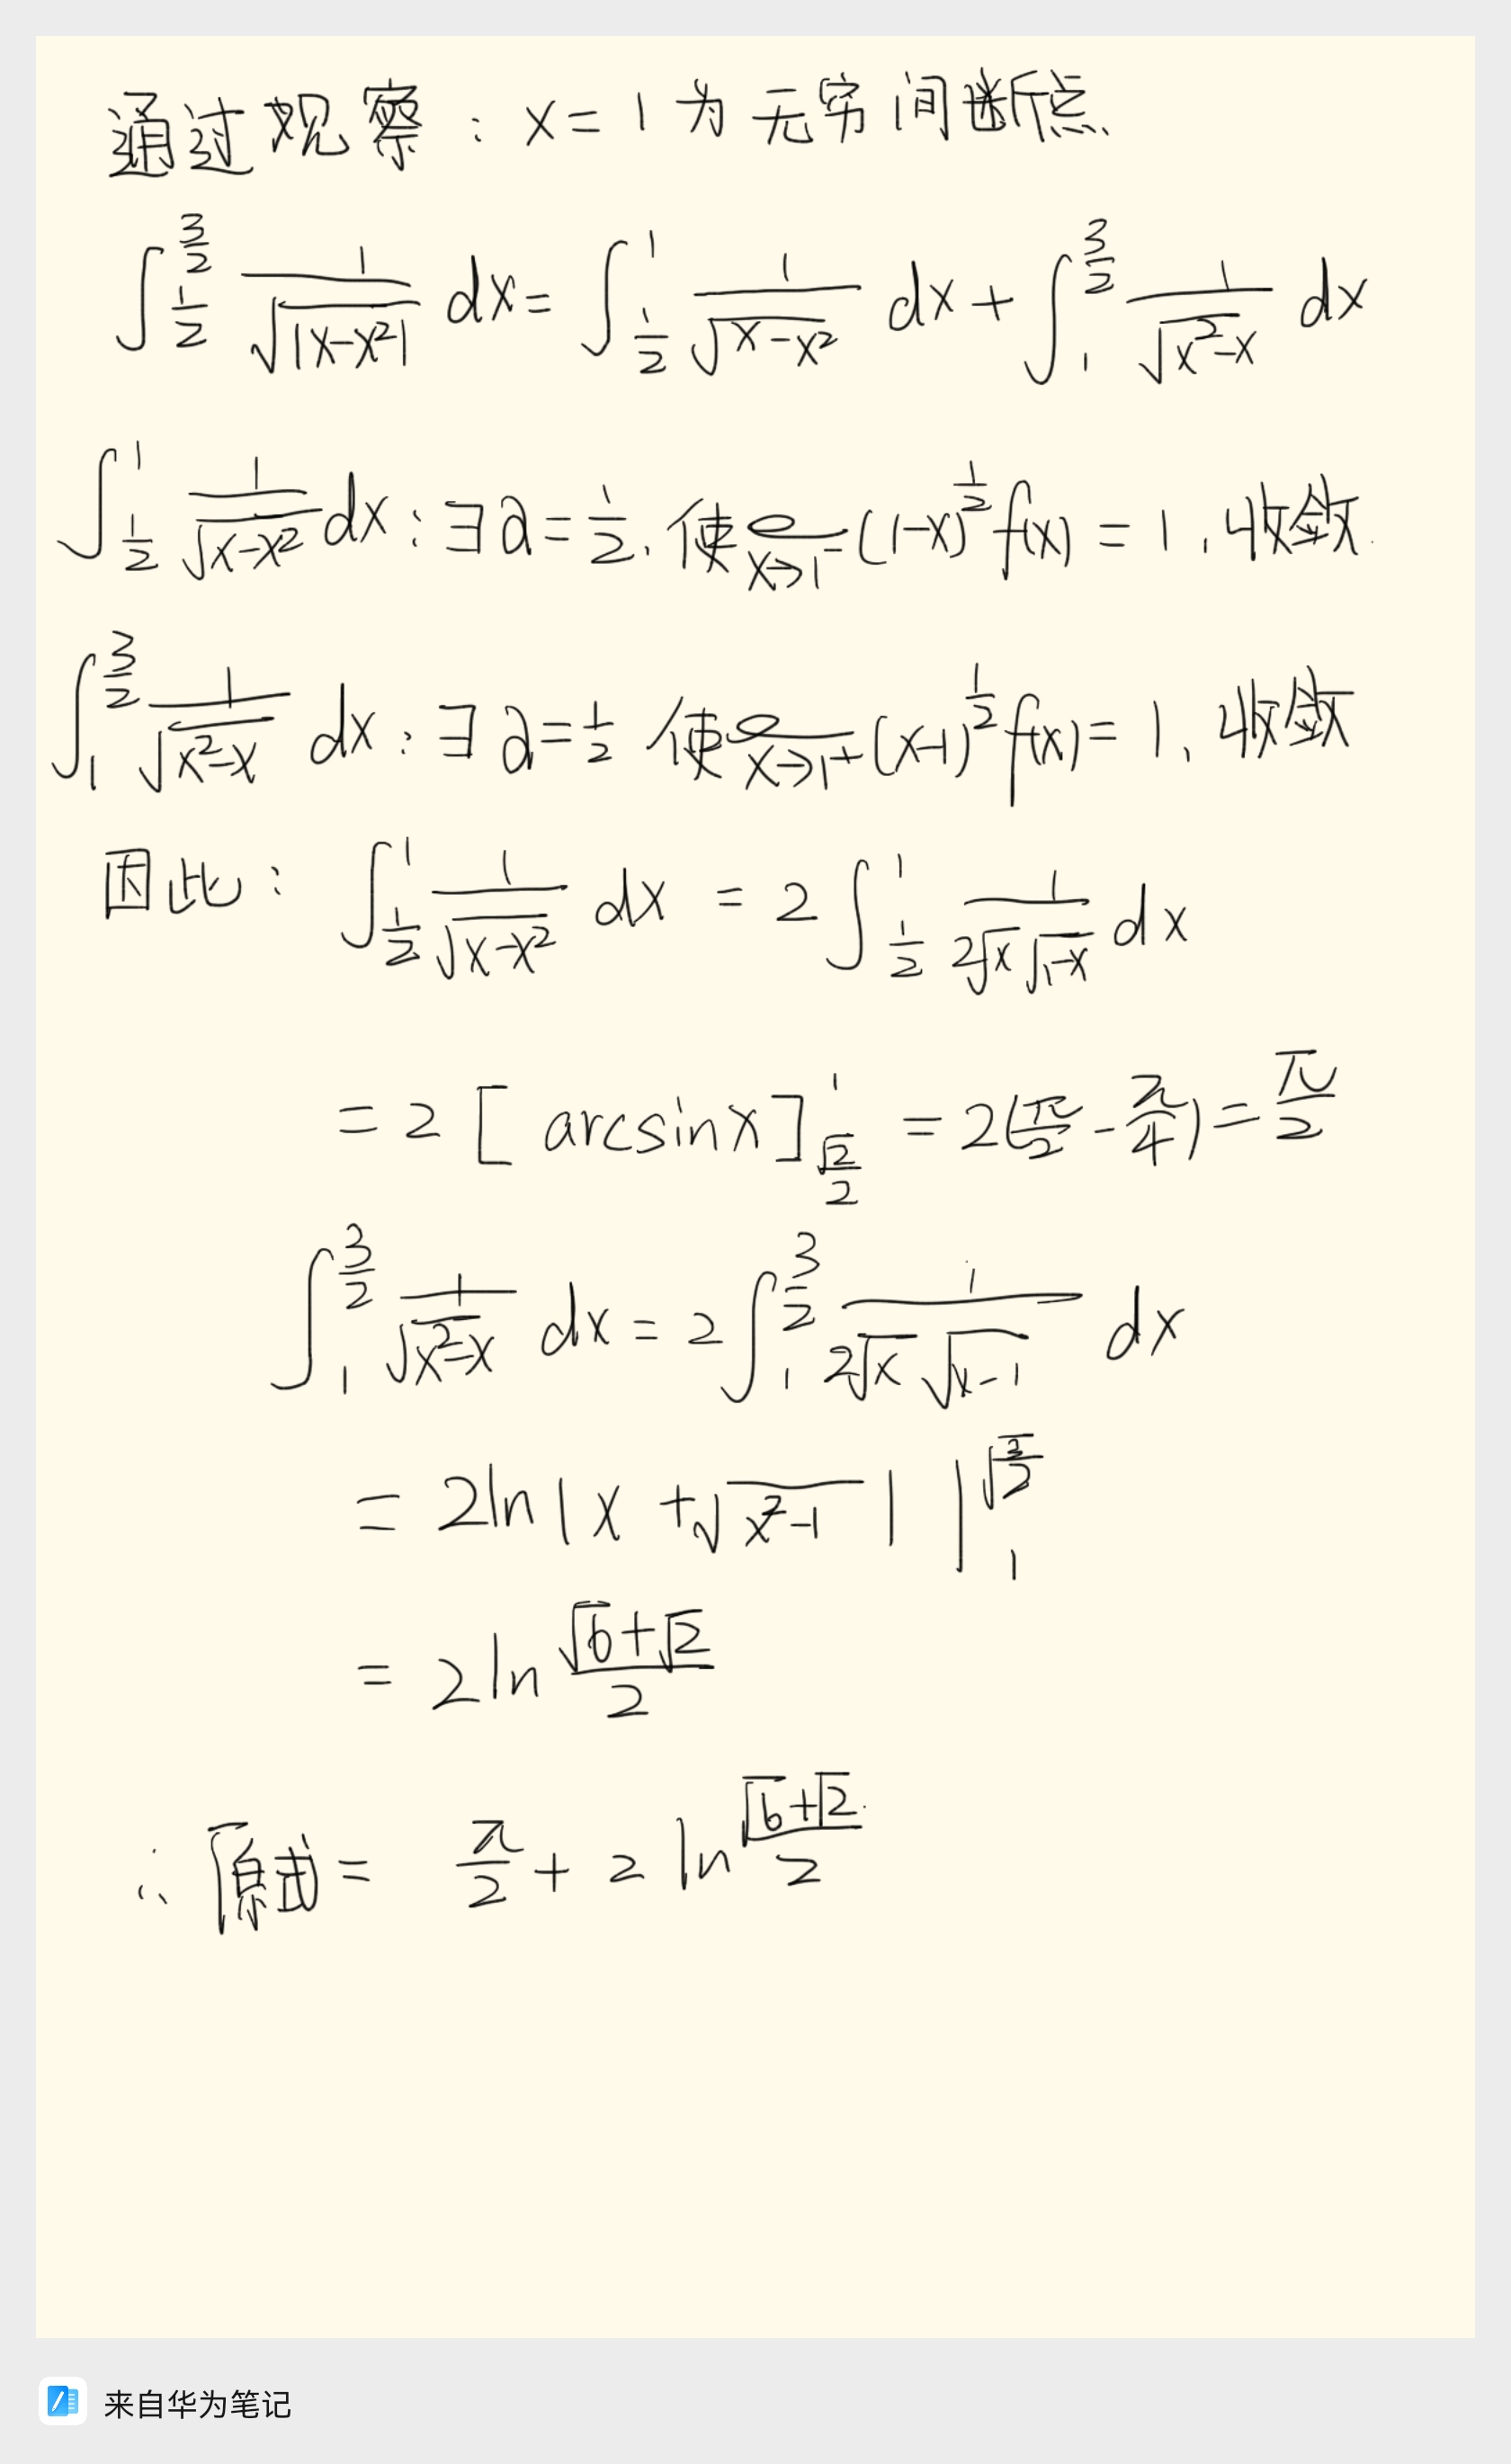 通过观察：x=1为无穷间断点
∫_{1/2}^{3/2} 1/√|x-x²| dx = ∫_{1/2}^{1} 1/√(x-x²) dx + ∫_{1}^{3/2} 1/√(x²-x) dx
∫_{1/2}^{1} 1/√(x-x²) dx：∃ ∂=1/2，使 ℓ_{x→1⁻} (1-x)^{1/2} f(x) = 1，收敛.
∫_{1}^{3/2} 1/√(x²-x) dx：∃ ∂=1/2 使 ℓ_{x→1⁺} (x-1)^{1/2} f(x) = 1，收敛
因此：∫_{1/2}^{1} 1/√(x-x²) dx = 2∫_{1/2}^{1} 1/(2√x √(1-x)) dx
= 2[arcsinx]_{√2/2}^{1} = 2(π/2 - π/4) = π/2
∫_{1}^{3/2} 1/√(x²-x) dx = 2∫_{1}^{3/2} 1/(2√x √(x-1)) dx
= 2ln|x+√(x²-1)| |_{1}^{√(3/2)}
= 2ln (√6+√2)/2
∴ 原式= π/2 + 2ln (√6+√2)/2
来自华为笔记